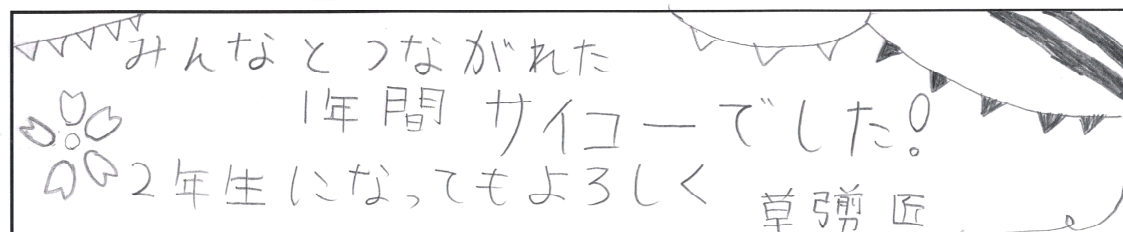 みんなとつながれた
1年間 サイコーでした!
2年生になってもよろしく
草彅 匠